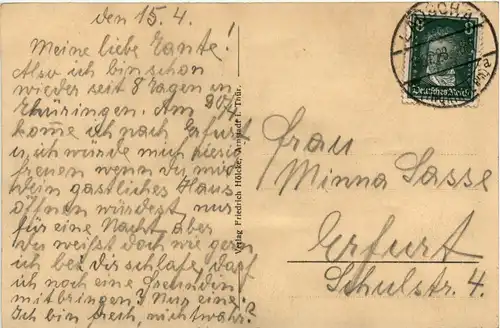 den 15.4.
Meine liebe Tante!
Also ich bin schon
wieder seit 8 Tagen in
Thüringen. Am 20/4
komme ich nach Erfurt
u. ich würde mich riesig
freuen wenn Du mir
Dein gastliches Haus
öffnen würdest, nur
für eine Nacht, aber
Du weißt doch wie gern
ich bei Dir schlafe, darf
ich noch eine Freundin
mitbringen? Nur eine!
Ich bin frech, nicht wahr?
Verlag Friedrich Hölcke, Arnstadt i. Thür.
8 8
Deutsches Reich
Frau
Minna Sasse
Erfurt
Schulstr. 4.